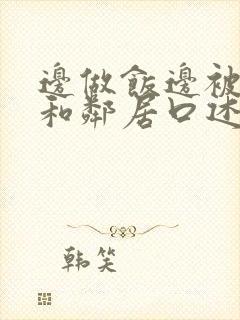 邊做飯邊被
和鄰居口述
韩笑